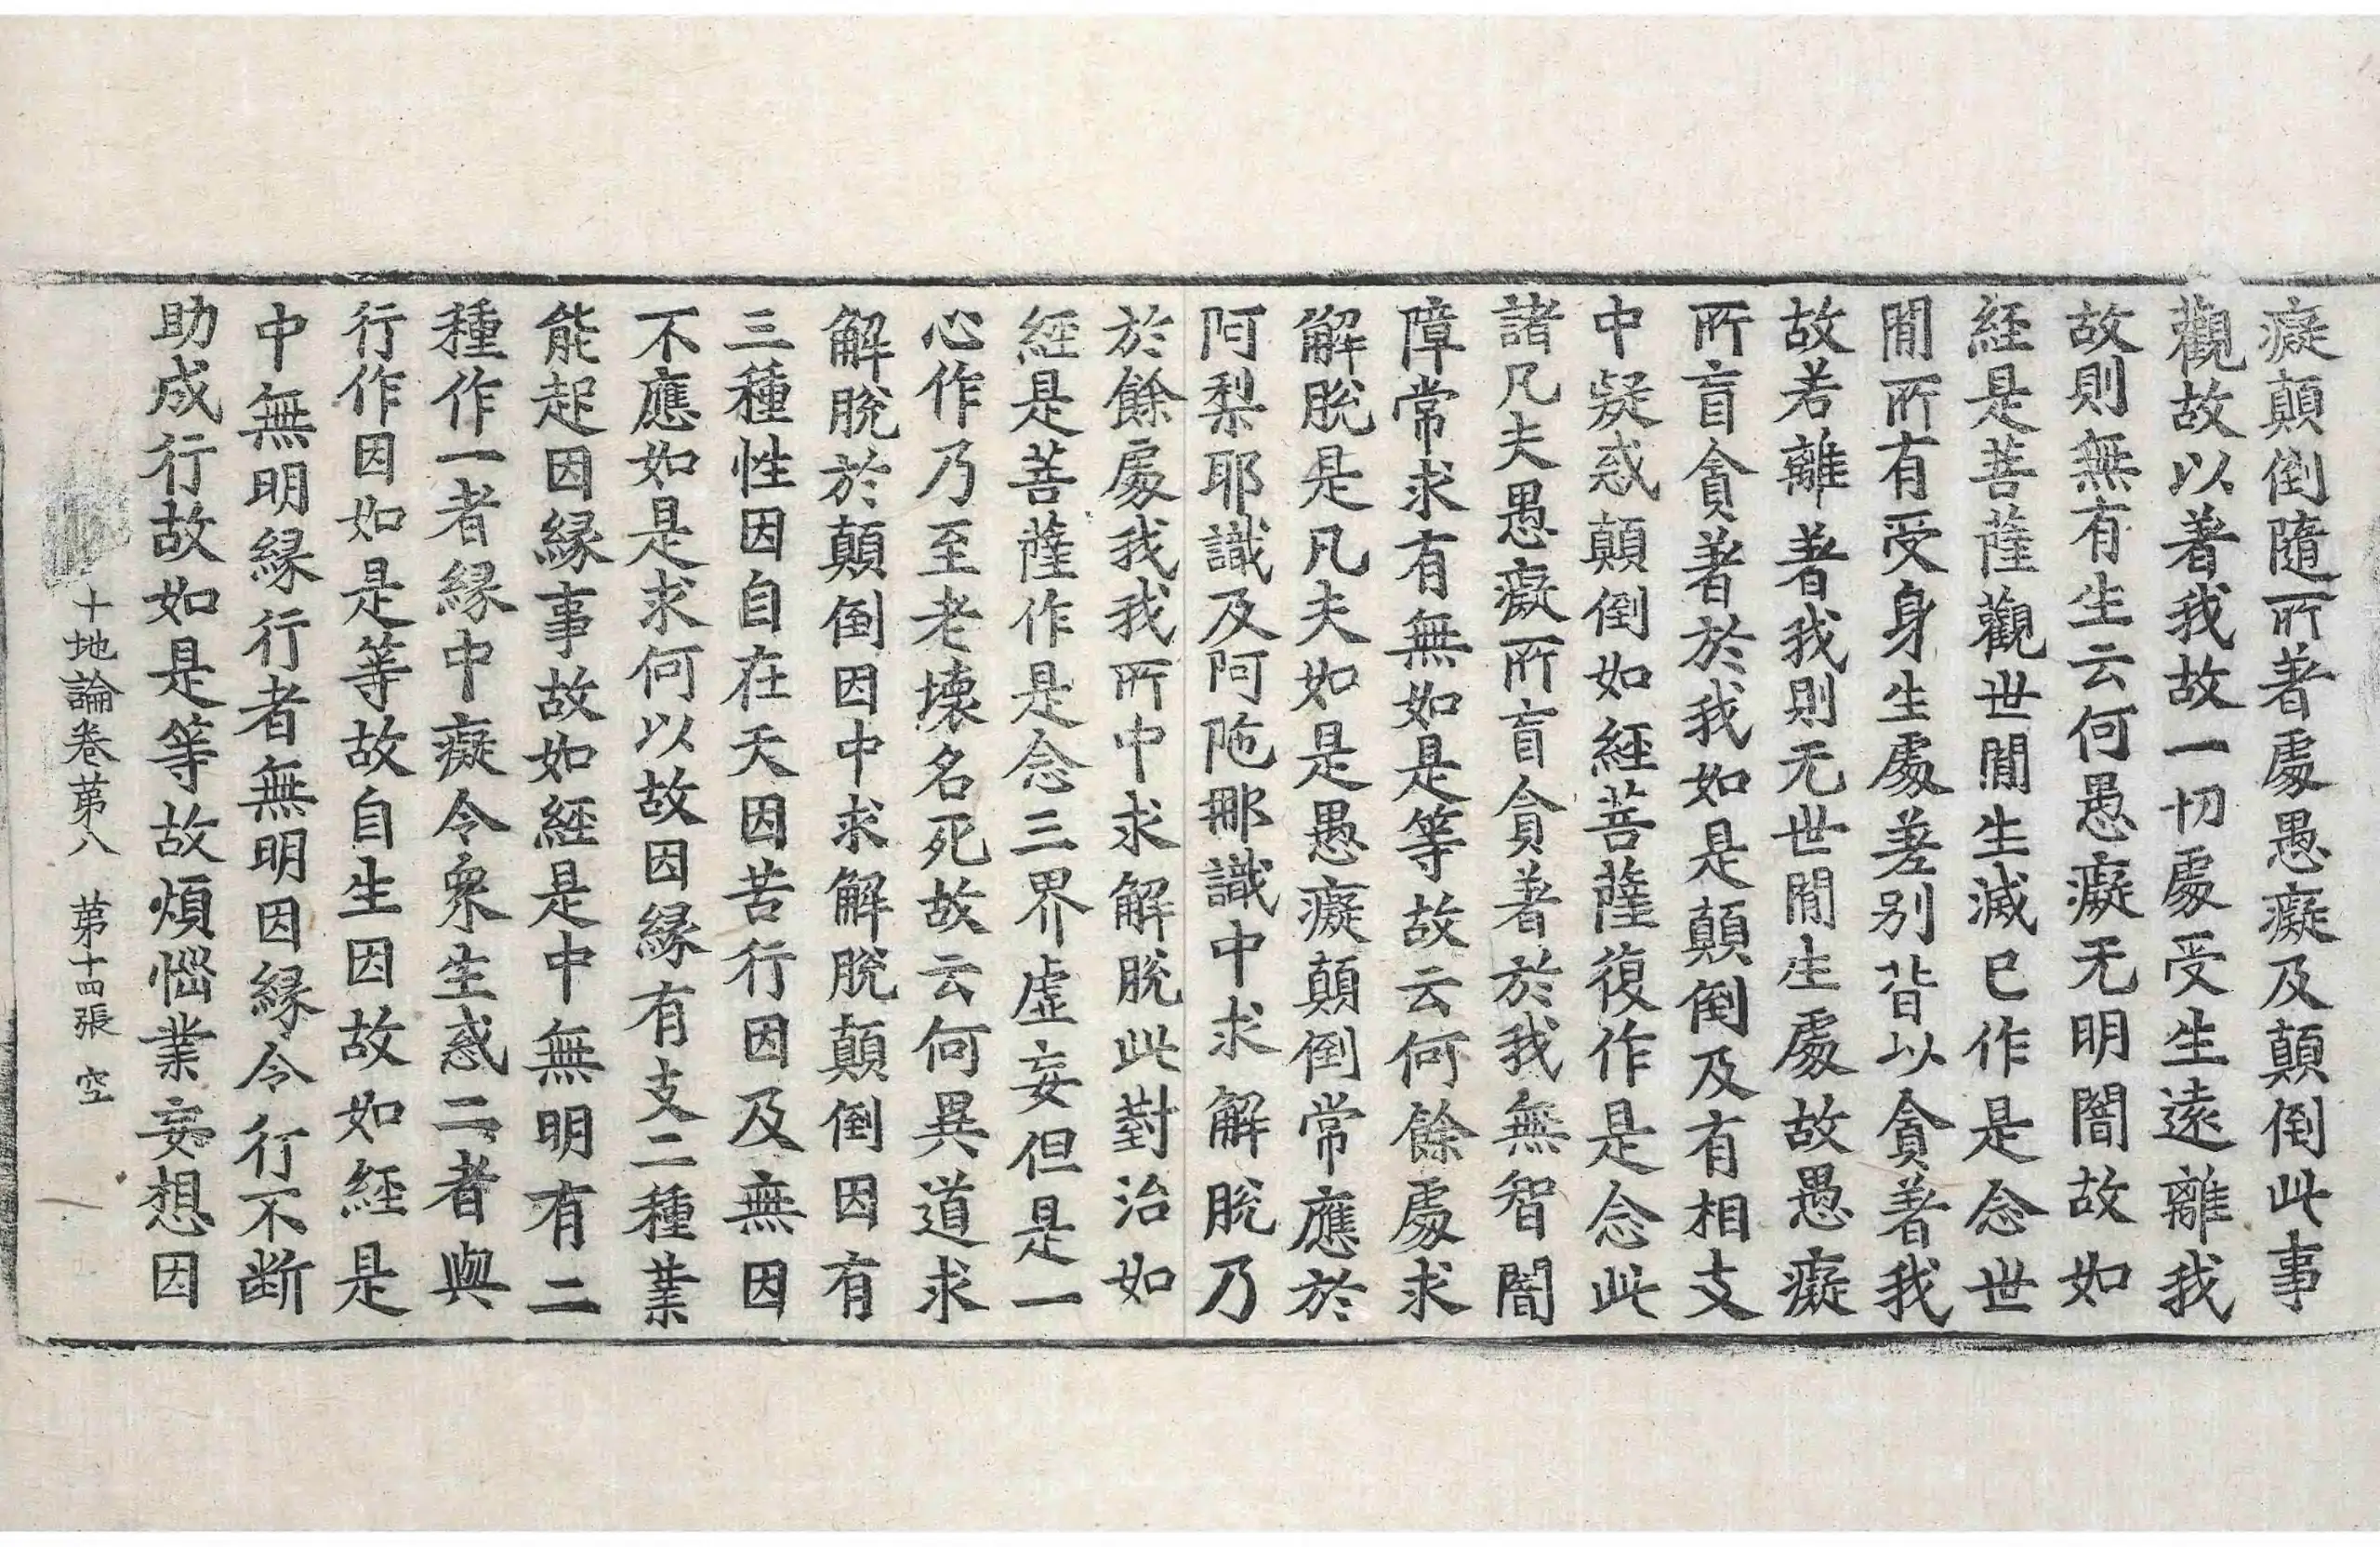 癡顛倒隨所著處愚癡及顛倒此事
觀故以著我故一切處受生遠離我
故則無有生云何愚癡无明闇故如
経是菩薩觀世閒生滅已作是念世
閒所有受身生處差別皆以貪著我
故若離著我則无世閒生處故愚癡
所盲貪著於我如是顛倒及有相支
中疑惑顛倒如経菩薩復作是念此
諸凡夫愚癡所盲貪著於我無智闇
障常求有無如是等故云何餘處求
解脫是凡夫如是愚癡顛倒常應於
阿梨耶識及阿陁那識中求解脫乃
於餘處我我所中求解脫此對治如
経是菩薩作是念三界虛妄但是一
心作乃至老壞名死故云何異道求
解脫於顛倒因中求解脫顛倒因有
三種性因自在天因苦行因及無因
不應如是求何以故因縁有支二種業
能起因縁事故如経是中無明有二
種作一者縁中癡令衆生惑二者與
行作因如是等故自生因故如経是
中無明縁行者無明因縁令行不断
助成行故如是等故煩惱業妄想因
十地論卷苐八　苐十四張　空